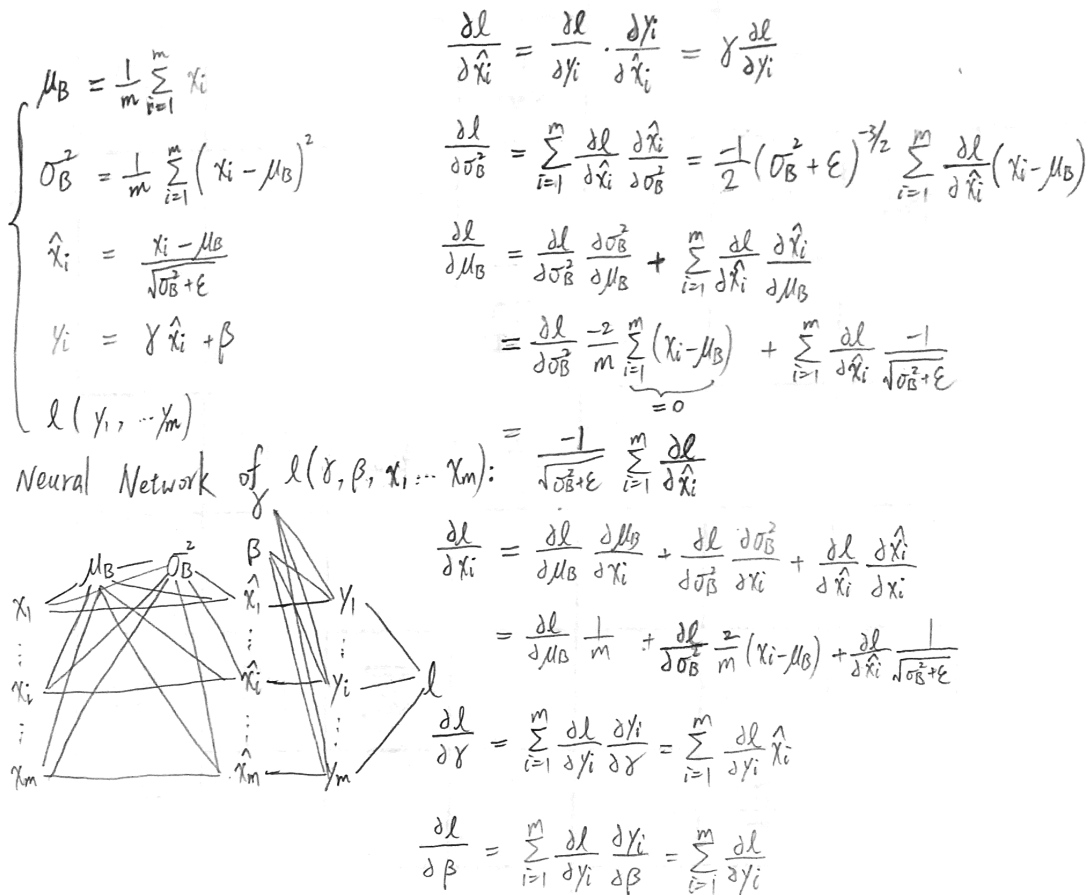 μ_B = 1/m Σ_{i=1}^{m} x_i
σ_B^2 = 1/m Σ_{i=1}^{m} (x_i − μ_B)^2
x̂_i = (x_i − μ_B) / √(σ_B^2 + ε)
y_i = γ x̂_i + β
l(y_1, ⋯ y_m)
Neural Network of l(γ, β, x_1 ⋯ x_m):
γ
β
μ_B σ_B^2
x_1 x̂_1 y_1
⋮ ⋮ ⋮
x_i x̂_i y_i l
⋮ ⋮ ⋮
x_m x̂_m y_m
∂l/∂x̂_i = ∂l/∂y_i · ∂y_i/∂x̂_i = γ ∂l/∂y_i
∂l/∂σ_B^2 = Σ_{i=1}^{m} ∂l/∂x̂_i ∂x̂_i/∂σ_B^2 = −1/2 (σ_B^2 + ε)^{−3/2} Σ_{i=1}^{m} ∂l/∂x̂_i (x_i − μ_B)
∂l/∂μ_B = ∂l/∂σ_B^2 ∂σ_B^2/∂μ_B + Σ_{i=1}^{m} ∂l/∂x̂_i ∂x̂_i/∂μ_B
= ∂l/∂σ_B^2 −2/m Σ_{i=1}^{m} (x_i − μ_B) + Σ_{i=1}^{m} ∂l/∂x̂_i −1/√(σ_B^2 + ε)
= 0
= −1/√(σ_B^2 + ε) Σ_{i=1}^{m} ∂l/∂x̂_i
∂l/∂x_i = ∂l/∂μ_B ∂μ_B/∂x_i + ∂l/∂σ_B^2 ∂σ_B^2/∂x_i + ∂l/∂x̂_i ∂x̂_i/∂x_i
= ∂l/∂μ_B 1/m + ∂l/∂σ_B^2 2/m (x_i − μ_B) + ∂l/∂x̂_i 1/√(σ_B^2 + ε)
∂l/∂γ = Σ_{i=1}^{m} ∂l/∂y_i ∂y_i/∂γ = Σ_{i=1}^{m} ∂l/∂y_i x̂_i
∂l/∂β = Σ_{i=1}^{m} ∂l/∂y_i ∂y_i/∂β = Σ_{i=1}^{m} ∂l/∂y_i